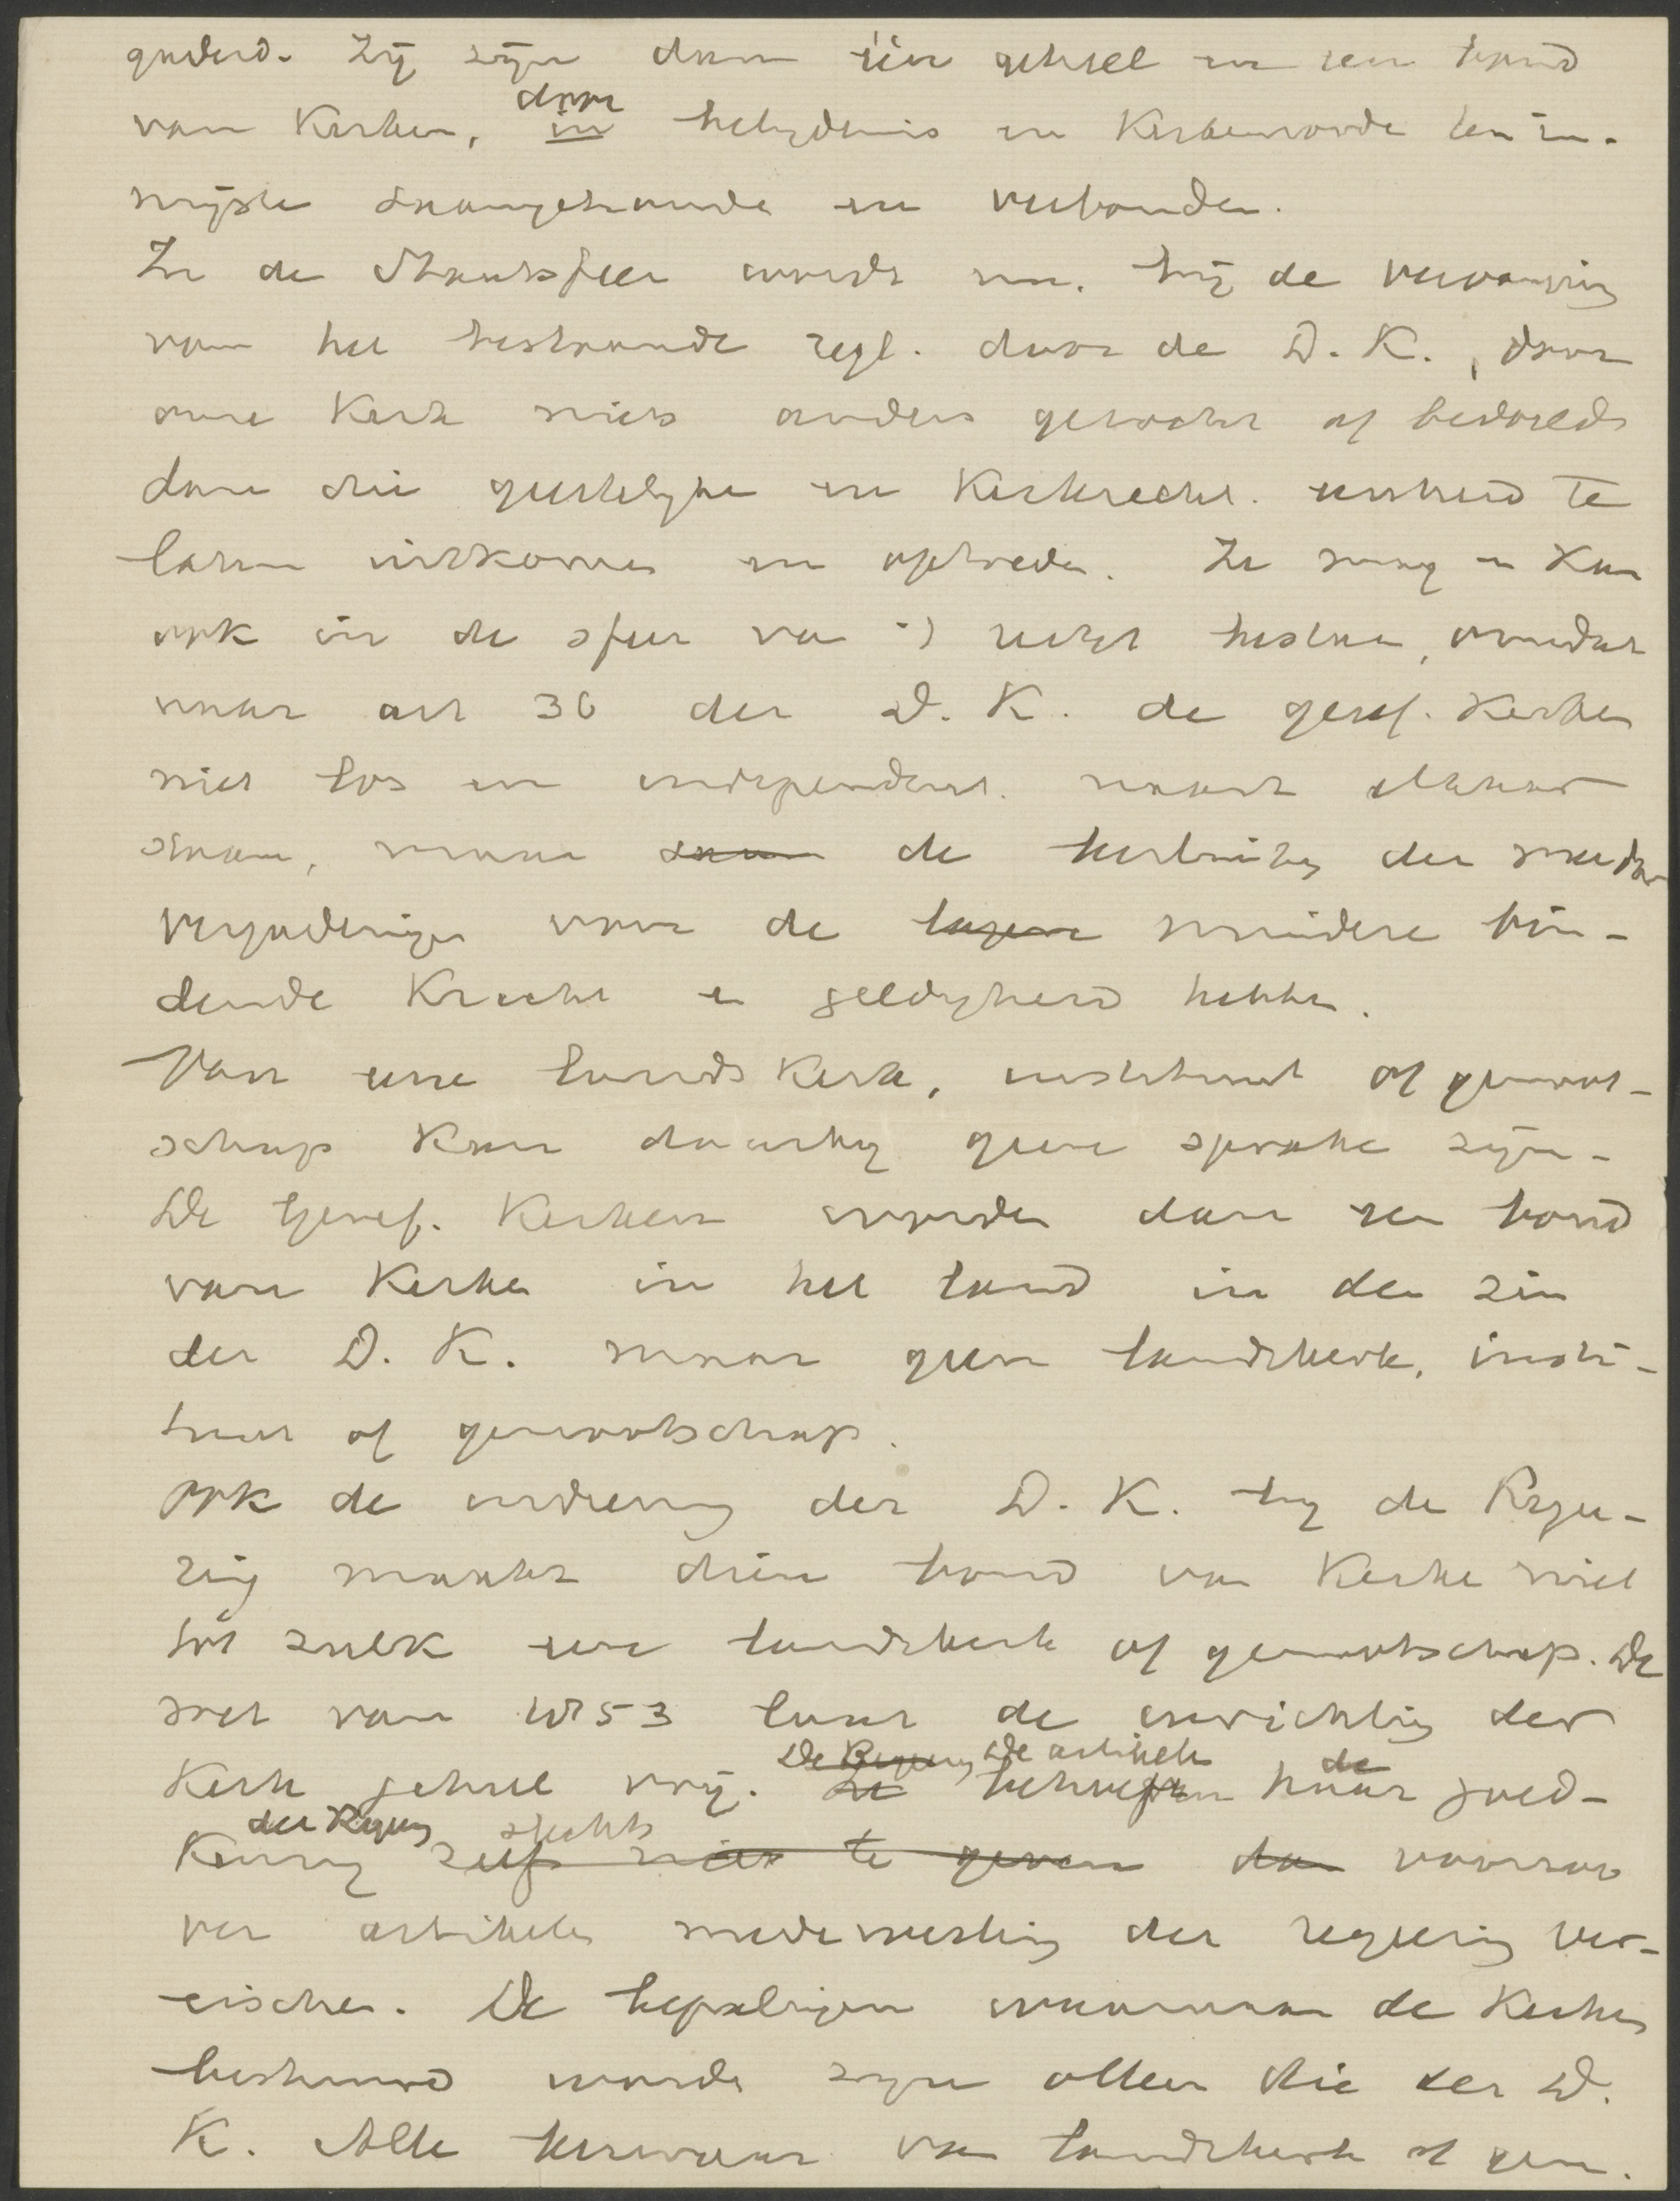 gaderd. Zij zijn dan één geheel en een bond
van Kerken, door belijdenis en Kerkenorde ten in-
nigste saamgehoude en verbonden.
In de Staatssfeer wordt nu, bij de vervanging
van het bestaande regl. door de D. K., door
onze Kerk niets anders gezocht of bedoeld
dan die geestelijke en Kerkrechtl. eenheid te
laten uitkomen en optreden. Ze mag en kan
ook in de sfeer van recht bestaan, omdat
naar art 36 der D. K. de geref. Kerken
niet los en independent. naast elkaar
staan, maar staan de besluiten der meerdere
vergaderingen voor de lagere mindere bin-
dende Kracht en geldigheid hebben.
Van eene landsKerk, instituut of genoot-
schap Kan daarbij geen sprake zijn.
De Geref. Kerken worden dan een bond
van Kerken in het land in den zin
der D. K. maar geen landskerk, insti-
tuut of genootschap.
Ook de indiening der D. K. bij de Regee-
ring maakt dien bond van Kerken niet
tot zulk een landskerk of genootschap. De
wet van 1853 laat de inrichting der
De Regering De artikelen de
Kerk geheel vrij. Ze behoeven haar goed-
der Regering slechts
Keuring zelfs niet te geven dan voorzoo
ver artikelen medewerking der regeering ver-
eischen. De bepalingen waarnaar de Kerken
bestuurd worden zijn alleen die der D.
K. Alle bezwaar van landskerk of gen.